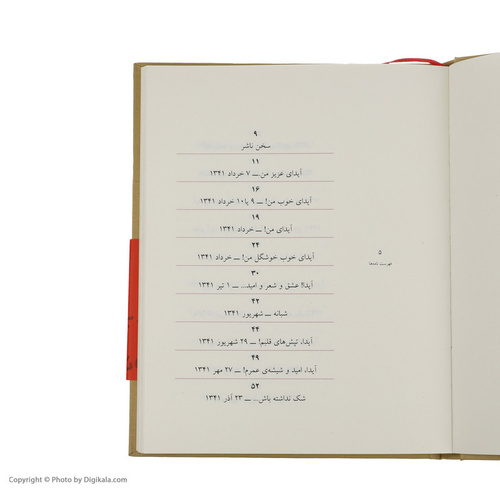 ۹
سخن ناشر
۱۱
آیدای عزیز من.ــ ۷ خرداد ۱۳۴۱
۱۶
آیدای خوب من! ــ ۹ یا۱۰ خرداد ۱۳۴۱
۱۹
آیدای من! ــ خرداد ۱۳۴۱
۲۴
آیدای خوب خوشگل من! ــ خرداد ۱۳۴۱
۳۰
آیدا! عشق و شعر و امید... ــ ۱ تیر ۱۳۴۱
۴۲
شبانه ــ شهریور ۱۳۴۱
۴۴
آیدا، تپش‌های قلبم! ــ ۲۹ شهریور ۱۳۴۱
۴۹
آیدا، امید و شیشه‌ی عمرم! ــ ۲۷ مهر ۱۳۴۱
۵۲
شک نداشته باش... ــ ۲۳ آذر ۱۳۴۱
۵
فهرست نامه‌ها
Copyright © Photo by Digikala.com